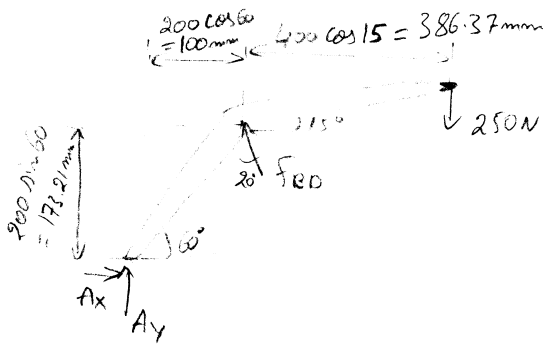 200 cos 60
= 100 mm
400 cos 15 = 386.37 mm
250N
15°
200 sin 60
= 173.21 mm
20°
FBD
60°
Ax
Ay